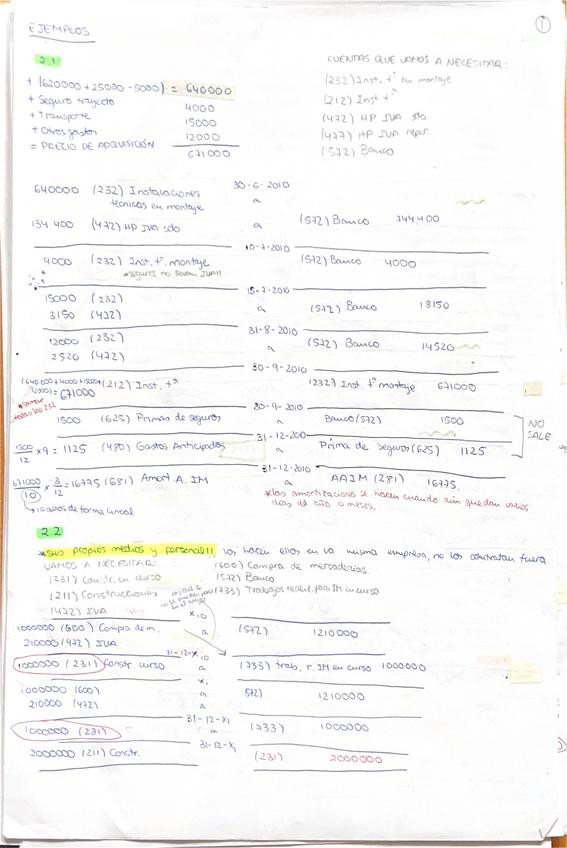 EJEMPLOS
1
2.1
CUENTAS QUE VAMOS A NECESITAR:
+ (620000 + 25000 - 5000) = 640000
(232) Inst. tª en montaje
+ Seguro trayecto 4000
(212) Inst tª
+ Transporte 15000
(472) HP IVA sdo
+ Otros gastos 12000
(477) HP IVA reper.
= PRECIO DE ADQUISICIÓN 671000
(572) Banco
30-6-2010
640000 (232) Instalaciones técnicas en montaje a
134 400 (472) HP IVA sdo a (572) Banco 744.400
10-7-2010
4000 (232) Inst. tª montaje a (572) Banco 4000
*seguros no llevan IVA!!
15-7-2010
15000 (232)
3150 (472) a (572) Banco 18150
31-8-2010
12000 (232)
2520 (472) a (572) Banco 14520
30-9-2010
(640000+4000+15000+12000) = 671000 (212) Inst. tª a (232) Inst. tª montaje 671000
todas las 232
30-9-2010
1500 (625) Primas de seguros a Banco (572) 1500
NO SALE
31-12-2010
1500/12 x 9 = 1125 (480) Gastos Anticipados a Prima de seguros (625) 1125
31-12-2010
671000/10 x 3/12 = 16775 (681) Amort. A. IM a AAIM (281) 16775.
→ 10 años de forma lineal
*las amortizaciones se hacen cuando aún quedan varios días del año o meses.
2.2
*sus propios medios y personal!!, los hacen ellos en la misma empresa, no los contratan fuera
VAMOS A NECESITAR: (600) Compra de mercaderías
(231) Constr. en curso (572) Banco
(211) Construcciones (733) Trabajos realiz. para IM en curso
(472) IVA
X10
1000000 (600) Compra de m. a (572) 1210000
210000 (472) IVA
31-12-X10
1000000 (231) Constr. curso a (733) trab. r. IM en curso 1000000
X1
1000000 (600) a (572) 1210000
210000 (472) a
31-12-X1
1000000 (231) a (733) 1000000
31-12-X1
2000000 (211) Constr. (231) 2000000